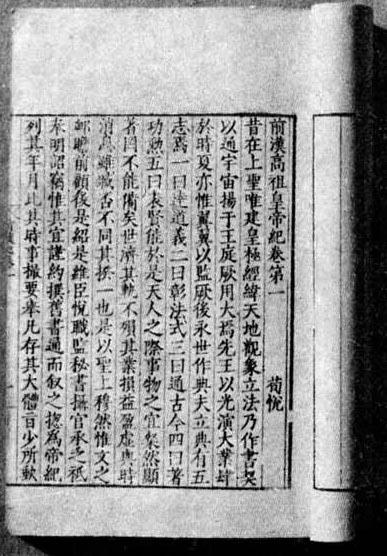 前漢高祖皇帝紀卷第一
荀悅
昔在上聖唯建皇極經緯天地觀象立法乃作書契
以通宇宙揚于王庭厥用大焉先王以光演大業肆
於時夏亦惟翼翼以監厥後永世作典夫立典有五
志焉一曰達道義二曰彰法式三曰通古今四曰著
功勲五曰表賢能於是天人之際事物之宜粲然顯
著罔不能備矣世濟其軌不殞其業損益盈虛與時
消息雖臧否不同其揆一也是以聖上穆然惟文之
卹瞻前顧後是紹是維臣悅職監秘書攝官承乏祗
奉明詔竊惟其宜謹約撰舊書通而叙之揔為帝紀
列其年月比其時事撮要舉凡存其大體旨少所缺